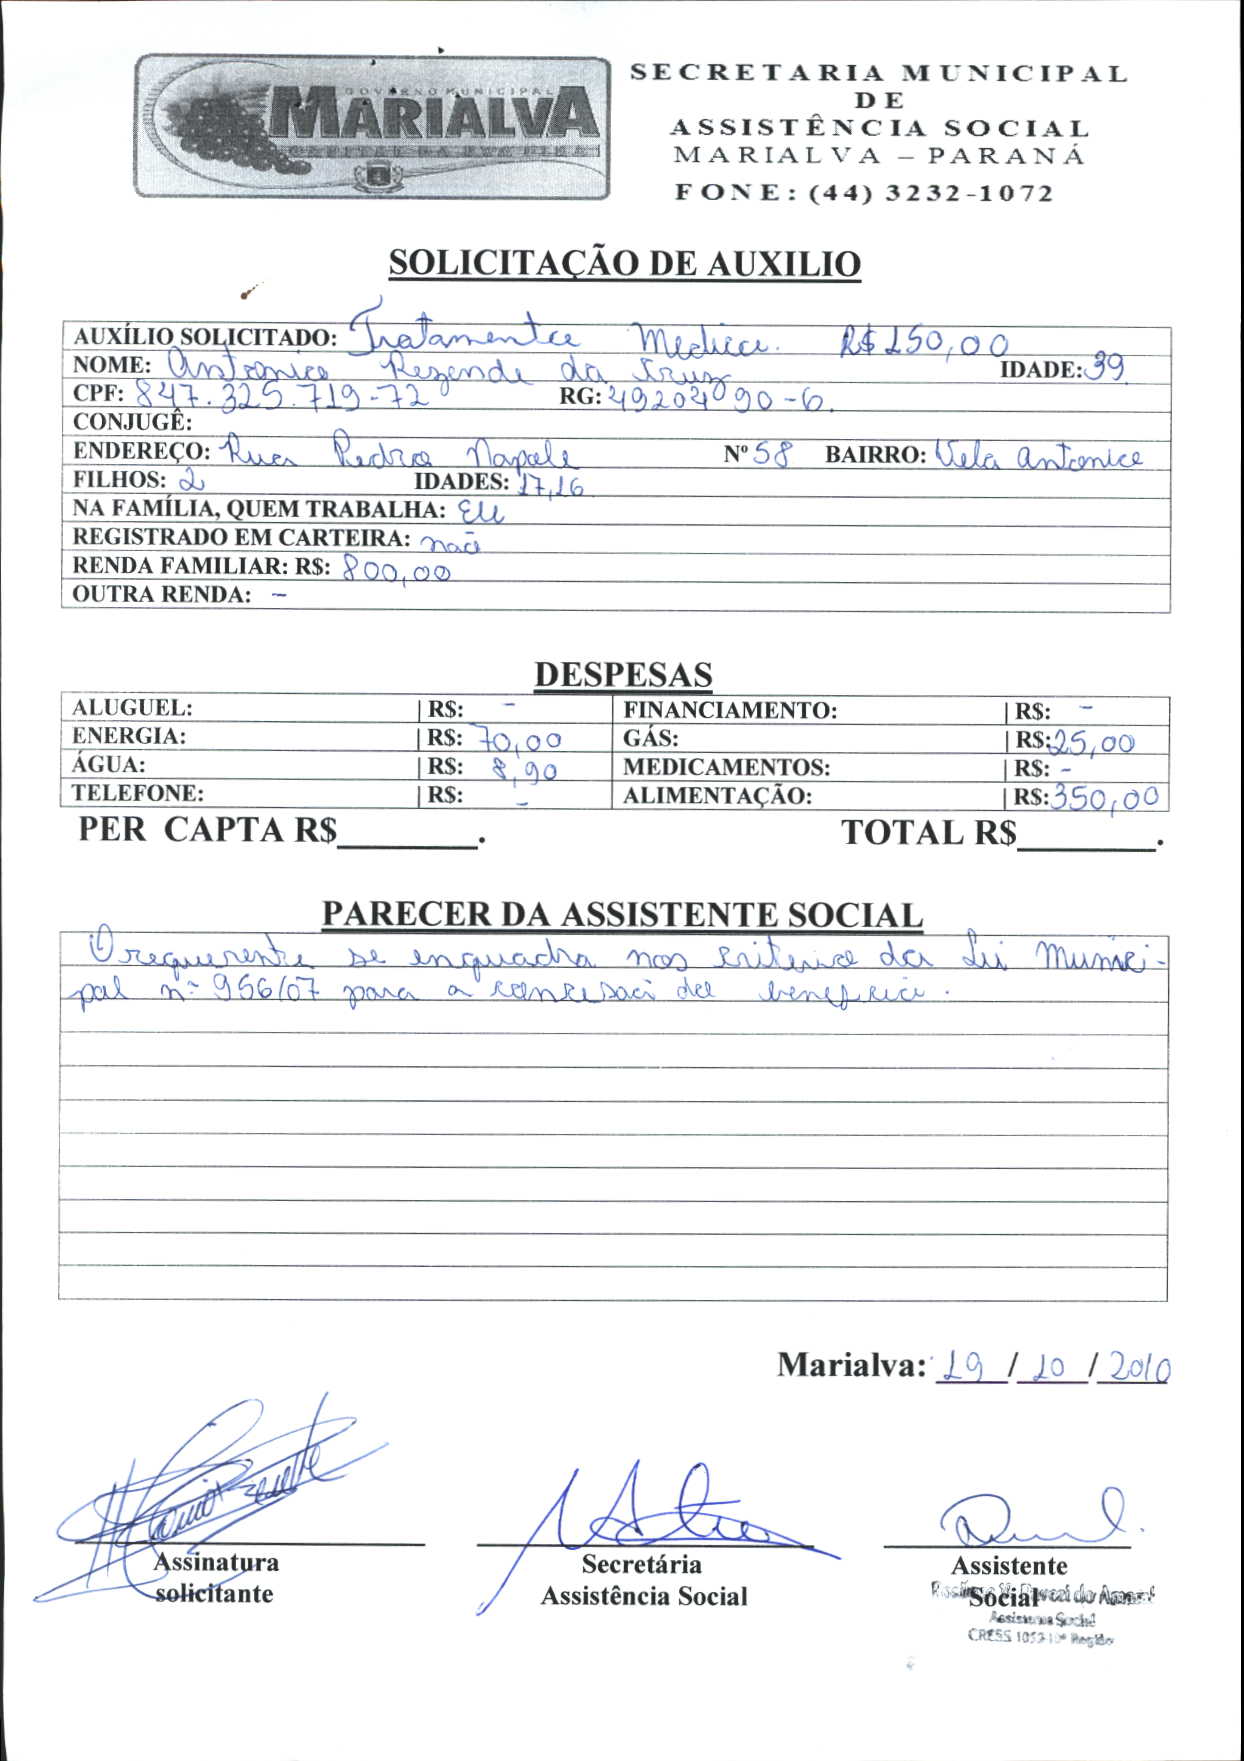 GOVERNO MUNICIPAL
MARIALVA
CAPITAL DA UVA FINA
SECRETARIA MUNICIPAL
DE
ASSISTÊNCIA SOCIAL
MARIALVA – PARANÁ
FONE: (44) 3232-1072
SOLICITAÇÃO DE AUXILIO
AUXÍLIO SOLICITADO: Tratamento Medico. R$ 150,00
NOME: Antonio Rezende da Cruz IDADE: 39
CPF: 847.325.719-72 RG: 49204090-6.
CONJUGÊ:
ENDEREÇO: Rua Pedro Napole Nº 58 BAIRRO: Vila Antonio
FILHOS: 2 IDADES: 17,16
NA FAMÍLIA, QUEM TRABALHA: Ele
REGISTRADO EM CARTEIRA: não
RENDA FAMILIAR: R$: 800,00
OUTRA RENDA: -
DESPESAS
ALUGUEL: | R$: - FINANCIAMENTO: | R$: -
ENERGIA: | R$: 70,00 GÁS: | R$: 25,00
ÁGUA: | R$: 8,90 MEDICAMENTOS: | R$: -
TELEFONE: | R$: - ALIMENTAÇÃO: | R$: 350,00
PER CAPTA R$________. TOTAL R$________.
PARECER DA ASSISTENTE SOCIAL
O requerente se enquadra nos criterios da Lei Munici-
pal nº 956/07 para a concessão do beneficio.
Marialva: 19 / 10 / 2010
Assinatura
solicitante
Secretária
Assistência Social
Assistente
Social
Assistente Social
CRESS Região